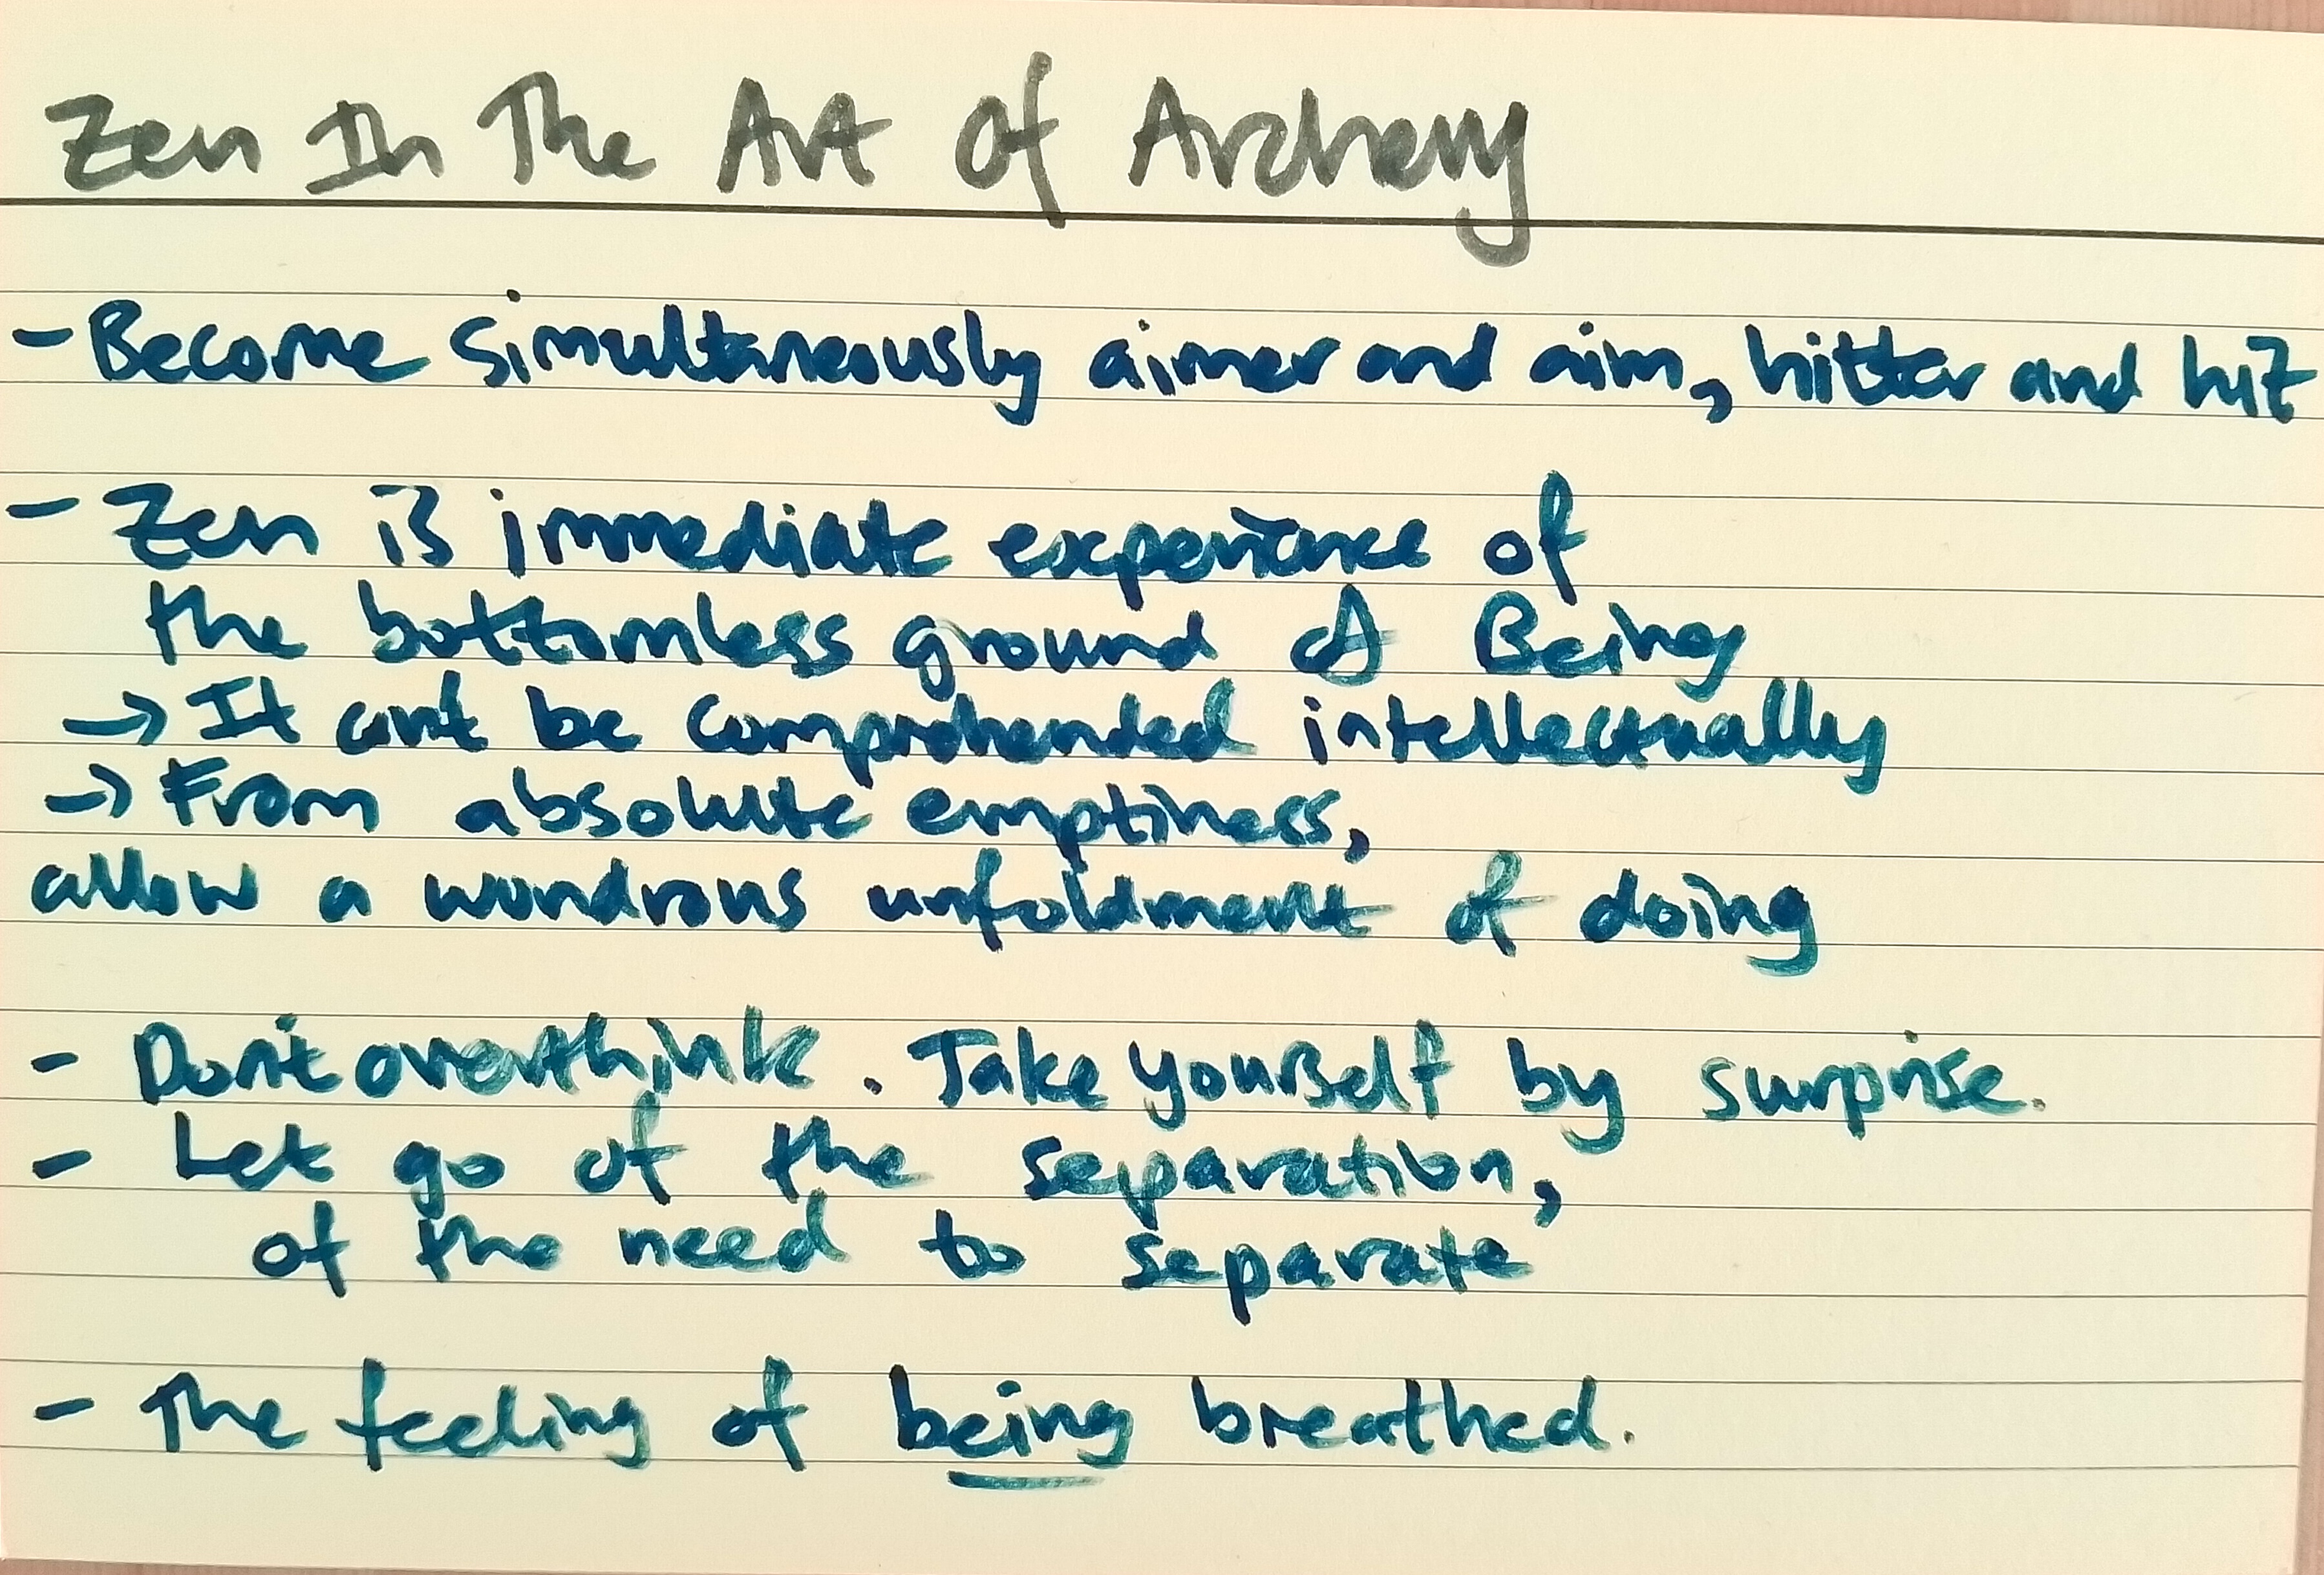 Zen In The Art Of Archery
- Become simultaneously aimer and aim, hitter and hit
- Zen is immediate experience of
the bottomless ground of Being
→ It can't be comprehended intellectually
→ From absolute emptiness,
allow a wondrous unfoldment of doing
- Don't overthink. Take yourself by surprise.
- Let go of the separation,
of the need to separate
- The feeling of being breathed.